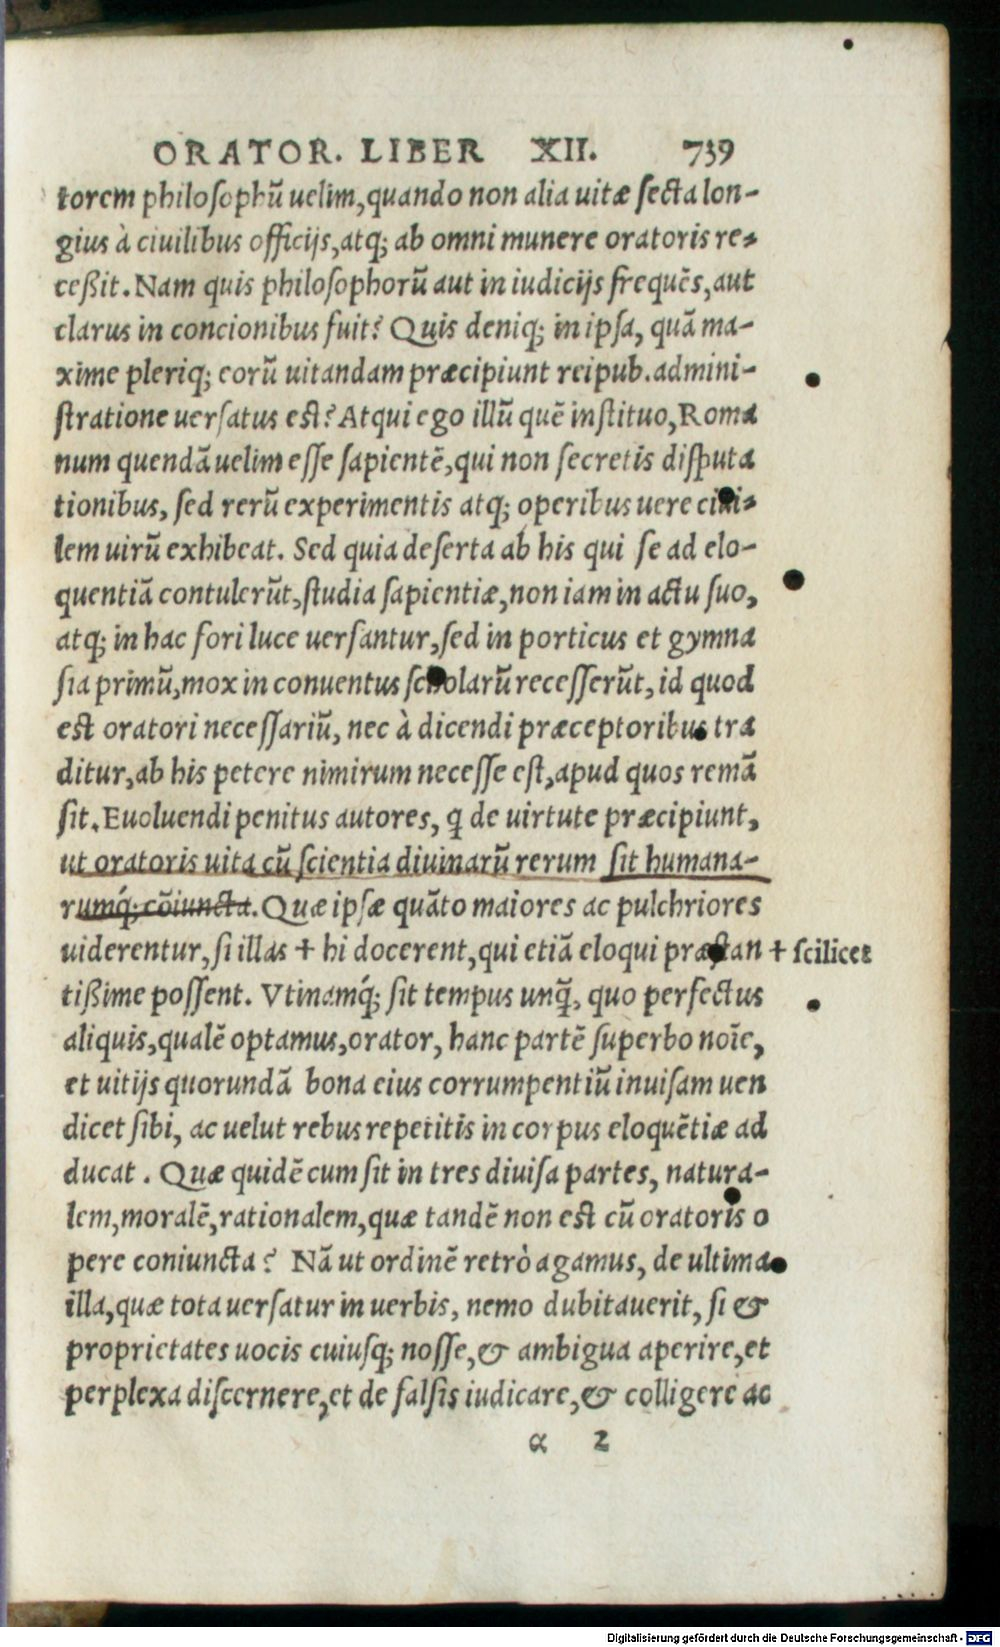 ORATOR. LIBER XII. 739
torem philosophū uelim, quando non alia uitæ secta lon-
gius à ciuilibus officijs, atq; ab omni munere oratoris re-
ceßit. Nam quis philosophorū aut in iudicijs frequēs, aut
clarus in concionibus fuit? Quis deniq; in ipsa, quā ma-
xime pleriq; eorū uitandam præcipiunt reipub. admini-
stratione uersatus est? Atqui ego illū quē instituo, Roma
num quendā uelim esse sapientē, qui non secretis disputa
tionibus, sed rerū experimentis atq; operibus uere ciui-
lem uirū exhibeat. Sed quia deserta ab his qui se ad elo-
quentiā contulerūt, studia sapientiæ, non iam in actu suo,
atq; in hac fori luce uersantur, sed in porticus et gymna
sia primū, mox in conuentus scholarū recesserūt, id quod
est oratori necessariū, nec à dicendi præceptoribus tra
ditur, ab his petere nimirum necesse est, apud quos remā
sit. Euoluendi penitus autores, q̄ de uirtute præcipiunt,
ut oratoris uita cū scientia diuinarū rerum sit humana-
rumq́; cōiuncta. Quæ ipsæ quāto maiores ac pulchriores
uiderentur, si illas + hi docerent, qui etiā eloqui præstan + scilicet
tißime possent. Vtinamq́; sit tempus unq̄, quo perfectus
aliquis, qualē optamus, orator, hanc partē superbo noīe,
et uitijs quorundā bona eius corrumpentiū inuisam uen
dicet sibi, ac uelut rebus repetitis in corpus eloquētiæ ad
ducat. Quæ quidē cum sit in tres diuisa partes, natura-
lem, moralē, rationalem, quæ tandē non est cū oratoris o
pere coniuncta? Nā ut ordinē retrò agamus, de ultima
illa, quæ tota uersatur in uerbis, nemo dubitauerit, si &
proprietates uocis cuiusq; nosse, & ambigua aperire, et
perplexa discernere, et de falsis iudicare, & colligere ac
α 2
Digitalisierung gefördert durch die Deutsche Forschungsgemeinschaft - DFG